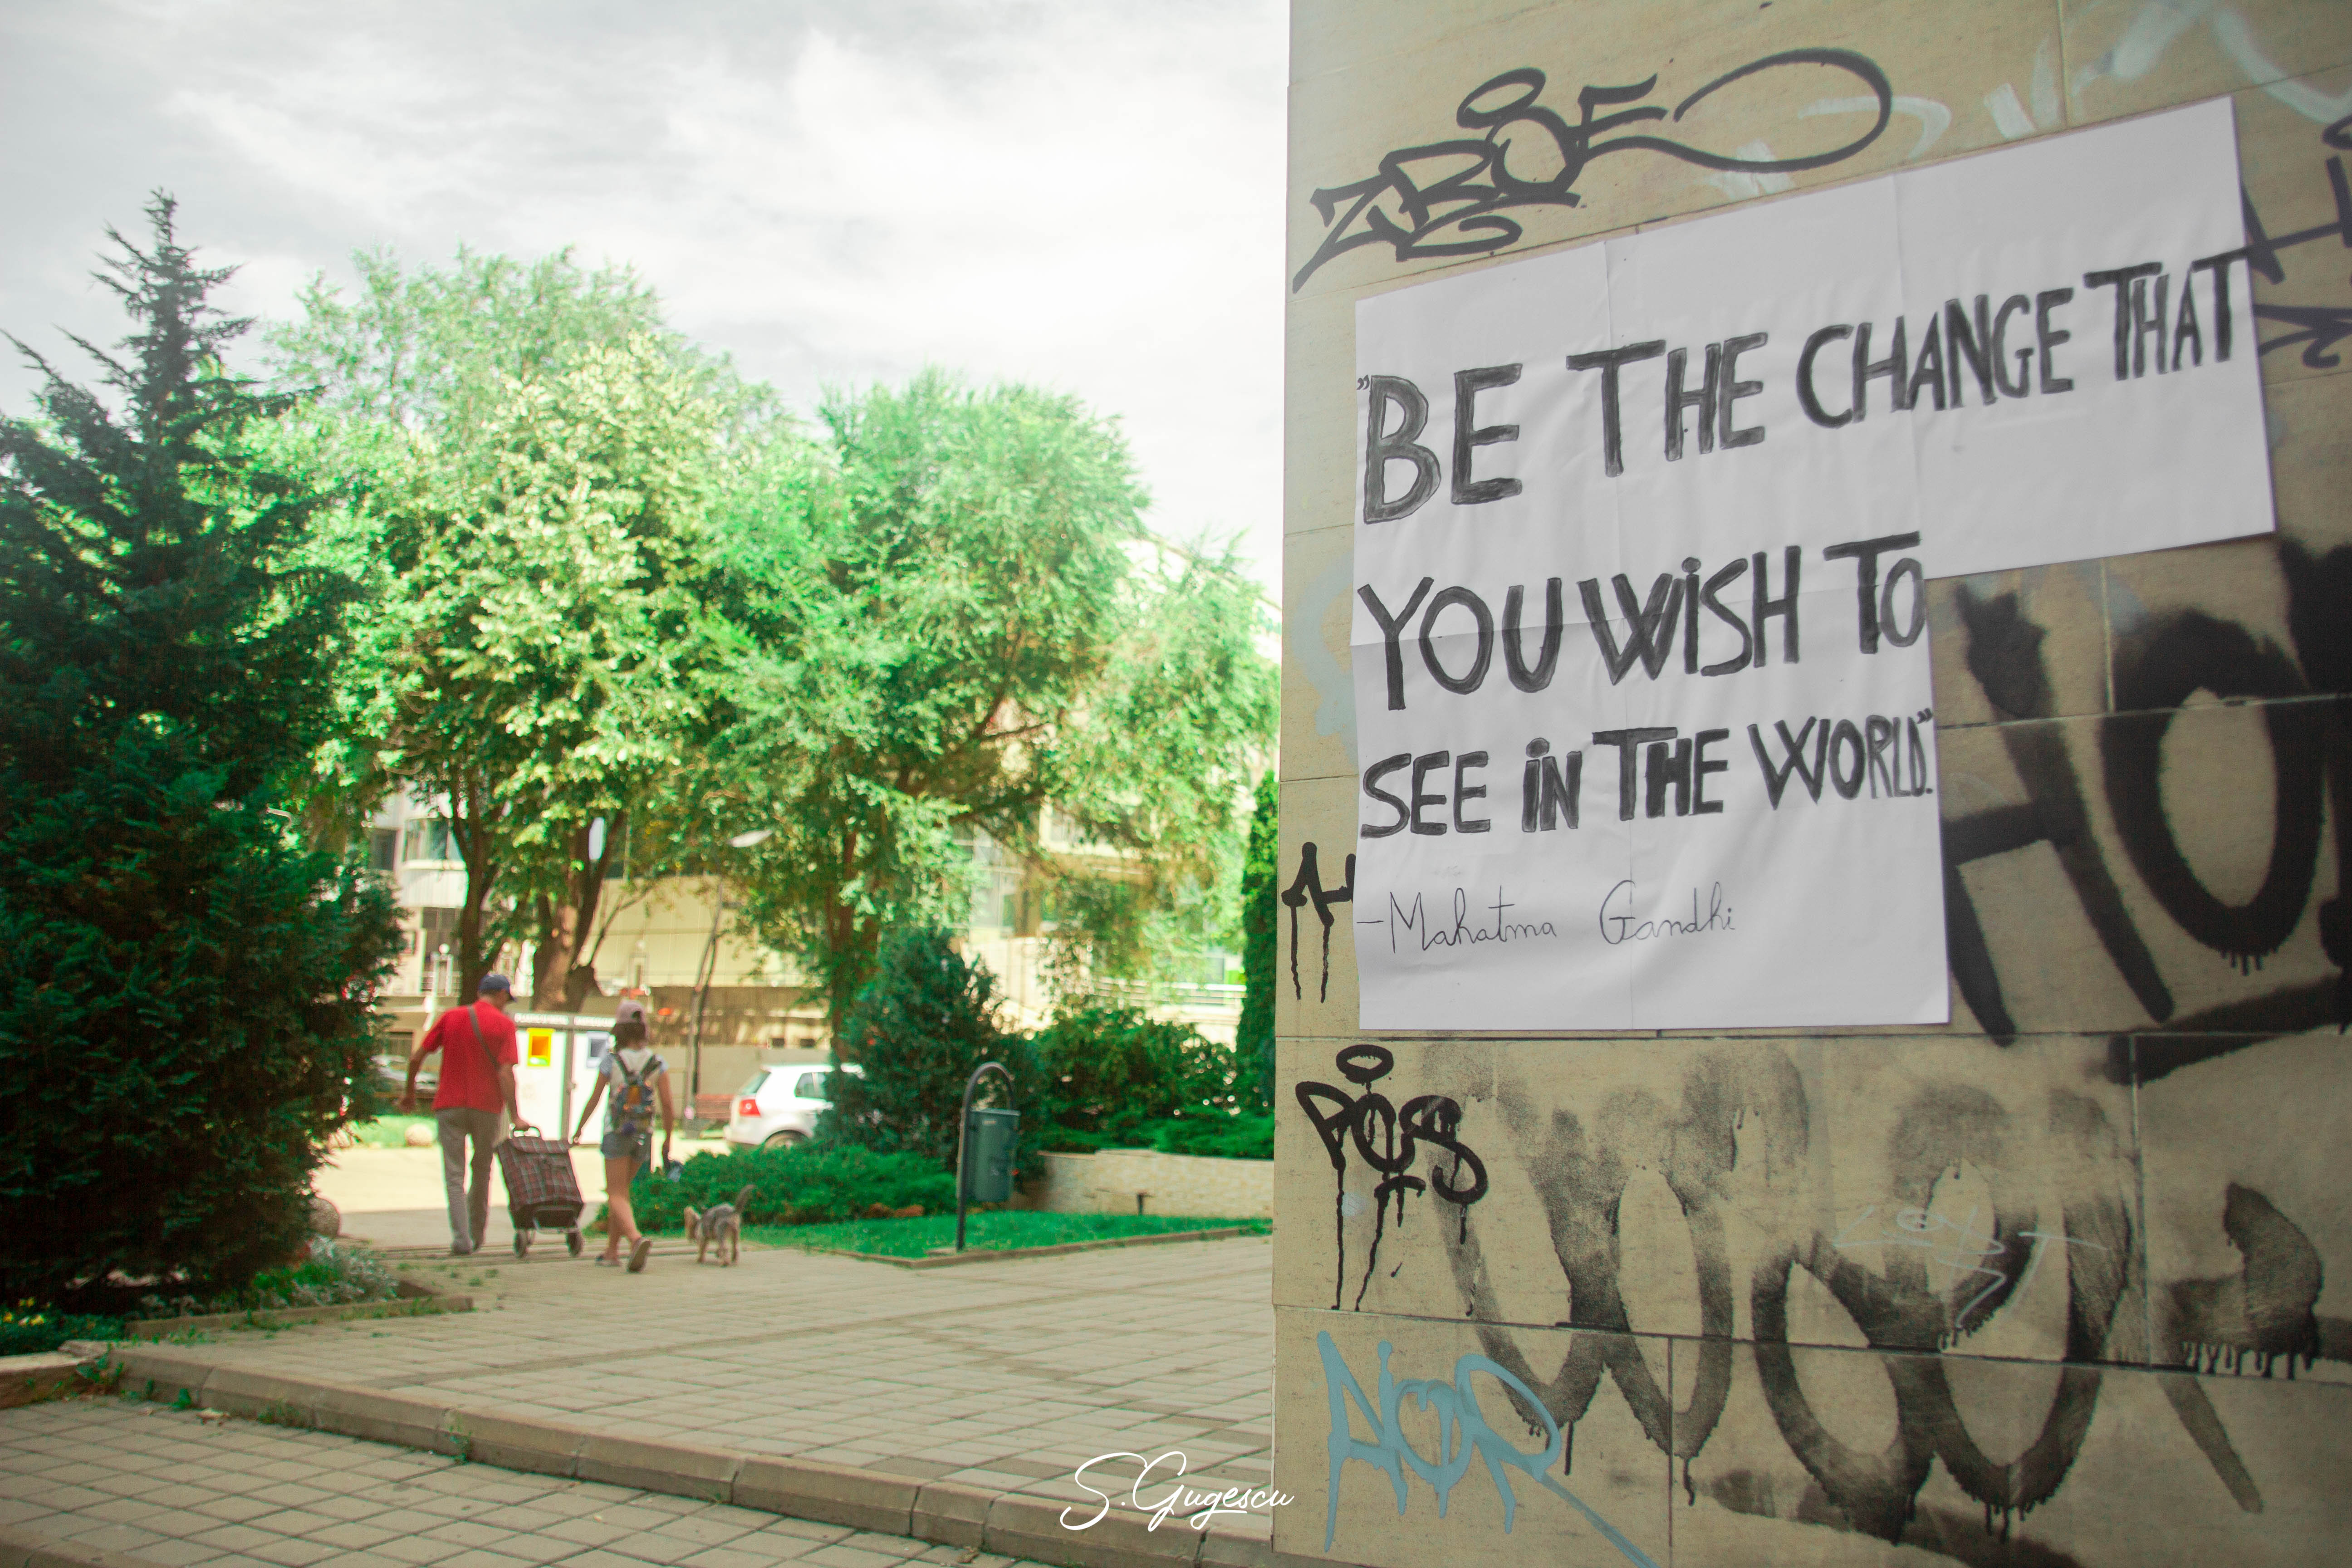 ZBOE
"BE THE CHANGE THAT
YOU WISH TO
SEE iN THE WORLD."
-Mahatma Gandhi
POS
S.Gugescu